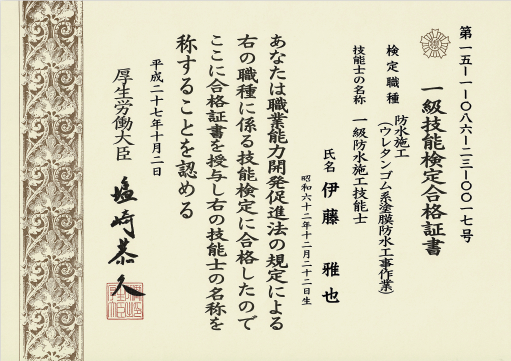 第一五－一－〇八六－二三－〇〇一七号
一級技能検定合格証書
検定職種
防水施工
（ウレタンゴム系塗膜防水工事作業）
技能士の名称
一級防水施工技能士
氏名 伊藤 雅也
昭和六十二年十二月二十二日生
あなたは職業能力開発促進法の規定による
右の職種に係る技能検定に合格したので
ここに合格証書を授与し右の技能士の名称を
称することを認める
平成二十七年十月二日
厚生労働大臣
塩崎恭久